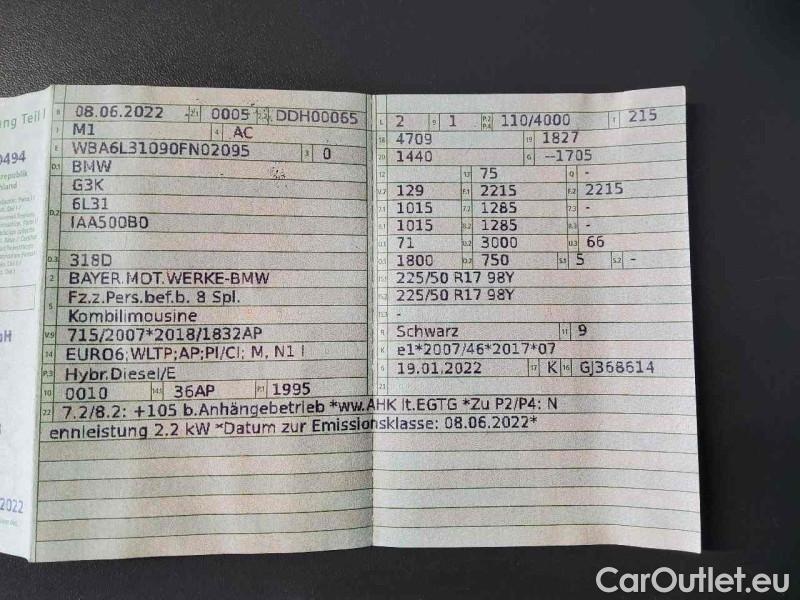 ng Teil I
0494
republik
hland
B 08.06.2022 2.1 0005 2.2 DDH00065
J M1 4 AC
E WBA6L31090FN02095 3 0
D.1 BMW
G3K
D.2 6L31
IAA500B0
D.3 318D
2 BAYER.MOT.WERKE-BMW
5 Fz.z.Pers.bef.b. 8 Spl.
Kombilimousine
V.9 715/2007*2018/1832AP
14 EURO6;WLTP;AP;PI/CI; M, N1 I
P.3 Hybr.Diesel/E
10 0010 14.1 36AP P.1 1995
22 7.2/8.2: +105 b.Anhängebetrieb *ww.AHK lt.EGTG *Zu P2/P4: N
ennleistung 2.2 kW *Datum zur Emissionsklasse: 08.06.2022*
L 2 9 1 P.2 P.4 110/4000 T 215
18 4709 19 1827
20 1440 G --1705
12 - 13 75 Q -
V.7 129 F.1 2215 F.2 2215
7.1 1015 7.2 1285 7.3 -
8.1 1015 8.2 1285 8.3 -
U.1 71 U.2 3000 U.3 66
O.1 1800 O.2 750 S.1 5 S.2 -
15.1 225/50 R17 98Y
15.2 225/50 R17 98Y
15.3 -
R Schwarz 11 9
K e1*2007/46*2017*07
6 19.01.2022 17 K 16 GJ368614
21
2022
CarOutlet.eu